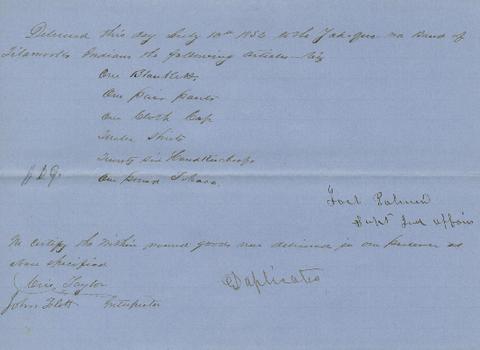 Delivered this day July 10th 1856 to the Yak-quo-na Band of
Tilamooks Indians the following articles Viz
One Blanket
One pair pants
One Cloth Cap
Under Shirts
Twenty six Handkerchiefs
One pound Tobaco
Joel Palmer
Supt Ind affairs
We Certify the within named goods was delivered in our presence as
above specified
Cris Taylor
John Flett Interpreter
Duplicates